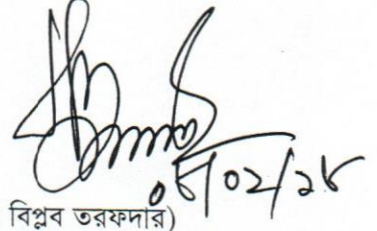 ০৮/০২/১৮
বিপ্লব তরফদার)